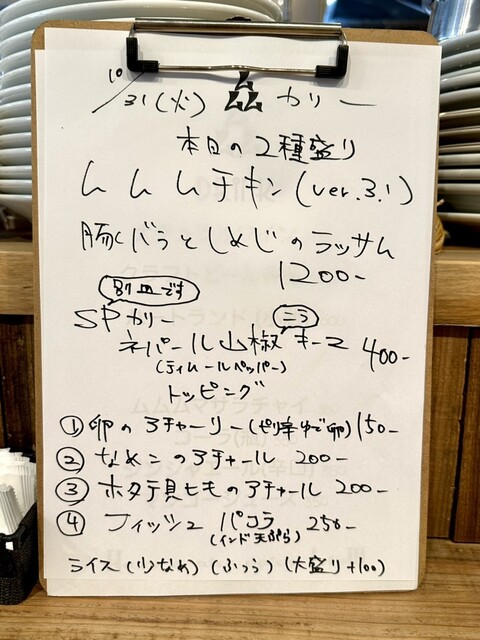 10/31(火) ムムム カリー
本日の2種盛り
ムムムチキン(ver.3.1)
豚バラとしめじのラッサム
1200-
別皿です
SPカリー
ニラ
ネパール山椒キーマ 400-
(ティムールペッパー)
トッピング
①卵のアチャーリー(ピリ辛ゆで卵)150-
②なめこのアチャール 200-
③ホタテ貝ヒモのアチャール 200-
④フィッシュ パコラ 250-
(インド天ぷら)
ライス(少なめ)(ふつう)(大盛り+100)